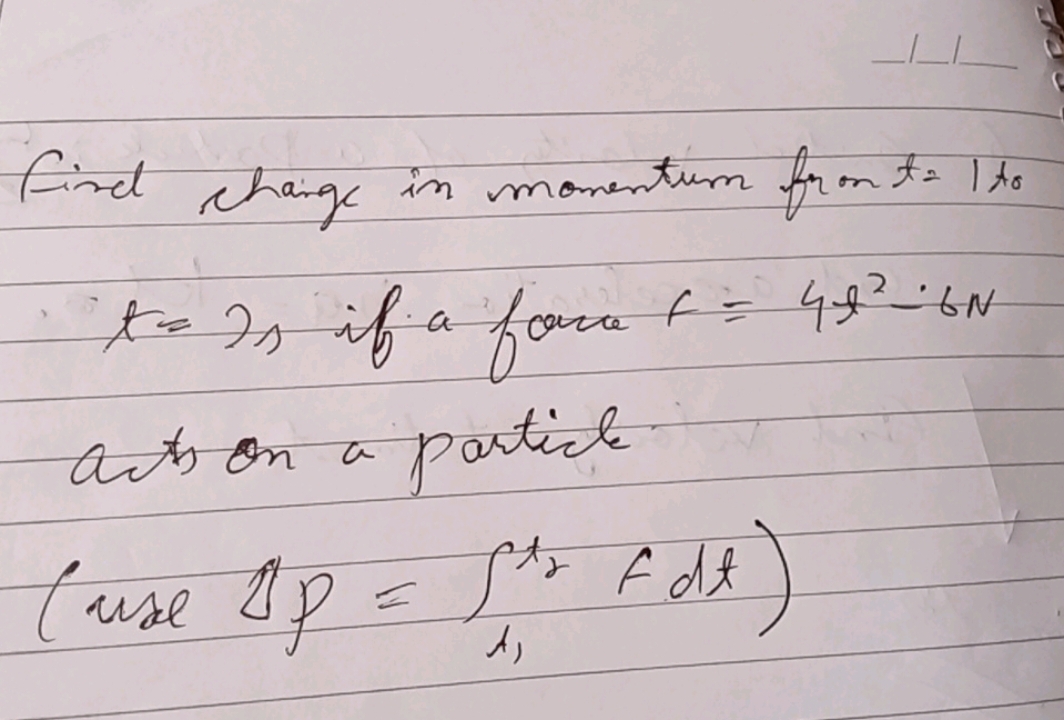 find change in momentum from t= 1 to
t= 2s if a force F = 4t² - 6N
acts on a particle
(use Δp = ∫t₁t₂ F dt)